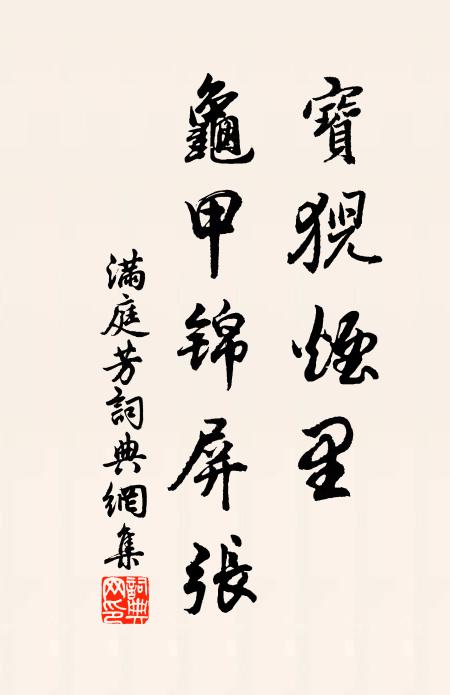 寶猊煙里
龜甲锦屏張
滿庭芳詞典網集
詞典网印